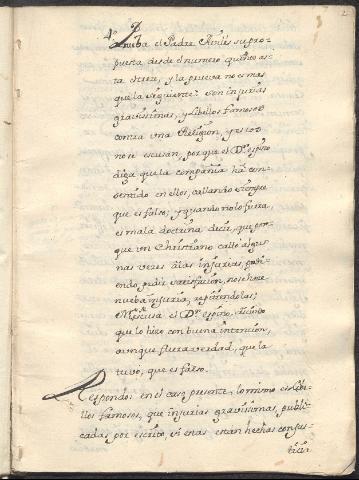 4º
Prueba el Padre Reniès su pro-
puesta desde el numero quinto as-
ta el trece, y la prueva no es mas
que la siguiente: son injurias
gravissimas, y Libellos famosos
contra una Religion, y estos
no se escusan, porque el Dr. espino
diga que la compañia ha con-
sentido en ellos, callando siempre
que es falso; y quando no lo fuera,
es mala doctrina decir, que por-
que un Christiano calle algu-
nas vezes a las injurias, pudi-
endo pedir satisfacion, no se le hace
nueba injuria, repitiendolas;
ni escusa el Dr. espino, diciendo
que lo hizo con buena intencion,
aunque fuera verdad, que la
tuvo, que es falso.
Respondo: en el caso presente, lo mismo es Libe-
llos famosos, que injurias gravissimas, publi-
cadas por escrito, si estas estan hechas con jus-